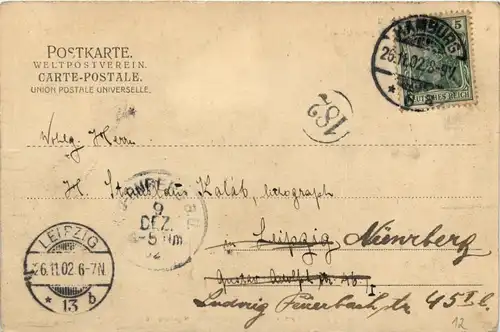 POSTKARTE.
WELTPOSTVEREIN.
CARTE-POSTALE.
UNION POSTALE UNIVERSELLE.
HAMBURG
26.11.02
5
DEUTSCHES REICH
182
Wohlg. Herrn
H. Stanislaus Kaláb,
in Leipzig Nürnberg
9
DEZ.
LEIPZIG
26.11.02 6-7N.
* 13 b
Gustav Adolf
Ludwig Feuerbach str 45 I
12